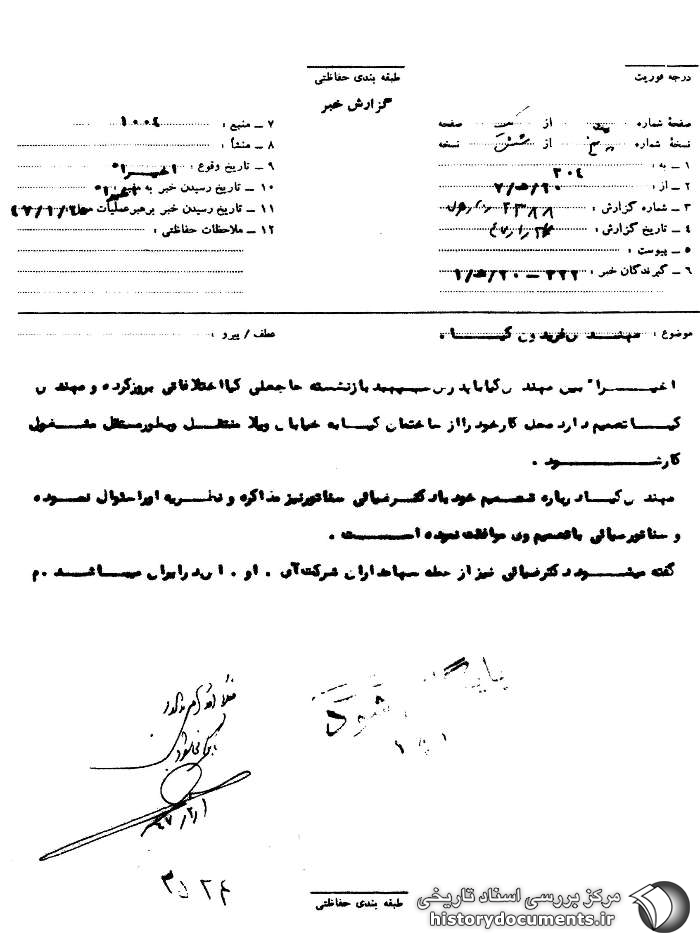 درجه فوریت
طبقه بندی حفاظتی
گزارش خبر
صفحهٔ شماره از یک صفحه
نسخهٔ شماره از شش نسخه
۱ ــ به : ۳۰۴
۲ ــ از : ۲۰/ه‍/۷
۳ ــ شماره گزارش :
۴ ــ تاریخ گزارش :
۵ ــ پیوست :
۶ ــ گیرندگان خبر : ۳۲۲ – ۲۰/ه‍/۱
۷ ــ منبع : ۱۰۰۴
۸ ــ منشأ :
۹ ــ تاریخ وقوع : اخیرا"
۱۰ ــ تاریخ رسیدن خبر به منبع : اخیرا"
۱۱ ــ تاریخ رسیدن خبر برهبر عملیات
۱۲ ــ ملاحظات حفاظتی :
موضوع : مهندس فریدون کیا .
عطف / پیرو :
اخیرا" بین مهندس کیا با پدرش سپهبد بازنشسته حاجعلی کیا اختلافاتی بروز کرده و مهندس
کیا تصمیم دارد محل کار خود را از ساختمان کیا به خیابان ویلا منتقل و بطور مستقل مشغول
کار شود .
مهندس کیا درباره تصمیم خود با دکتر ضیائی سناتور نیز مذاکره و نظریه او را سئوال نموده
و سناتور ضیائی با تصمیم وی موافقت نموده است .
گفته میشود دکتر ضیائی نیز از جمله سهامداران شرکت آی . او . اس در ایران میباشد . م
بایگانی شود
فعلا
طبقه بندی حفاظتی
مرکز بررسی اسناد تاریخی
historydocuments.ir